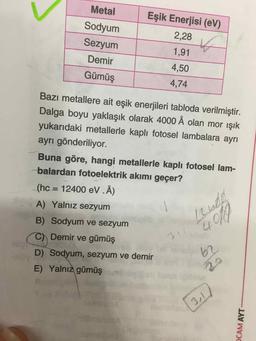 Metal Eşik Enerjisi (eV)
Sodyum 2,28
Sezyum 1,91
Demir 4,50
Gümüş 4,74
Bazı metallere ait eşik enerjileri tabloda verilmiştir.
Dalga boyu yaklaşık olarak 4000 Å olan mor ışık
yukarıdaki metallerle kaplı fotosel lambalara ayrı
ayrı gönderiliyor.
Buna göre, hangi metallerle kaplı fotosel lam-
balardan fotoelektrik akımı geçer?
(hc = 12400 eV . Å)
A) Yalnız sezyum
B) Sodyum ve sezyum
C) Demir ve gümüş
D) Sodyum, sezyum ve demir
E) Yalnız gümüş
3,1
62
20
3,1
AYT